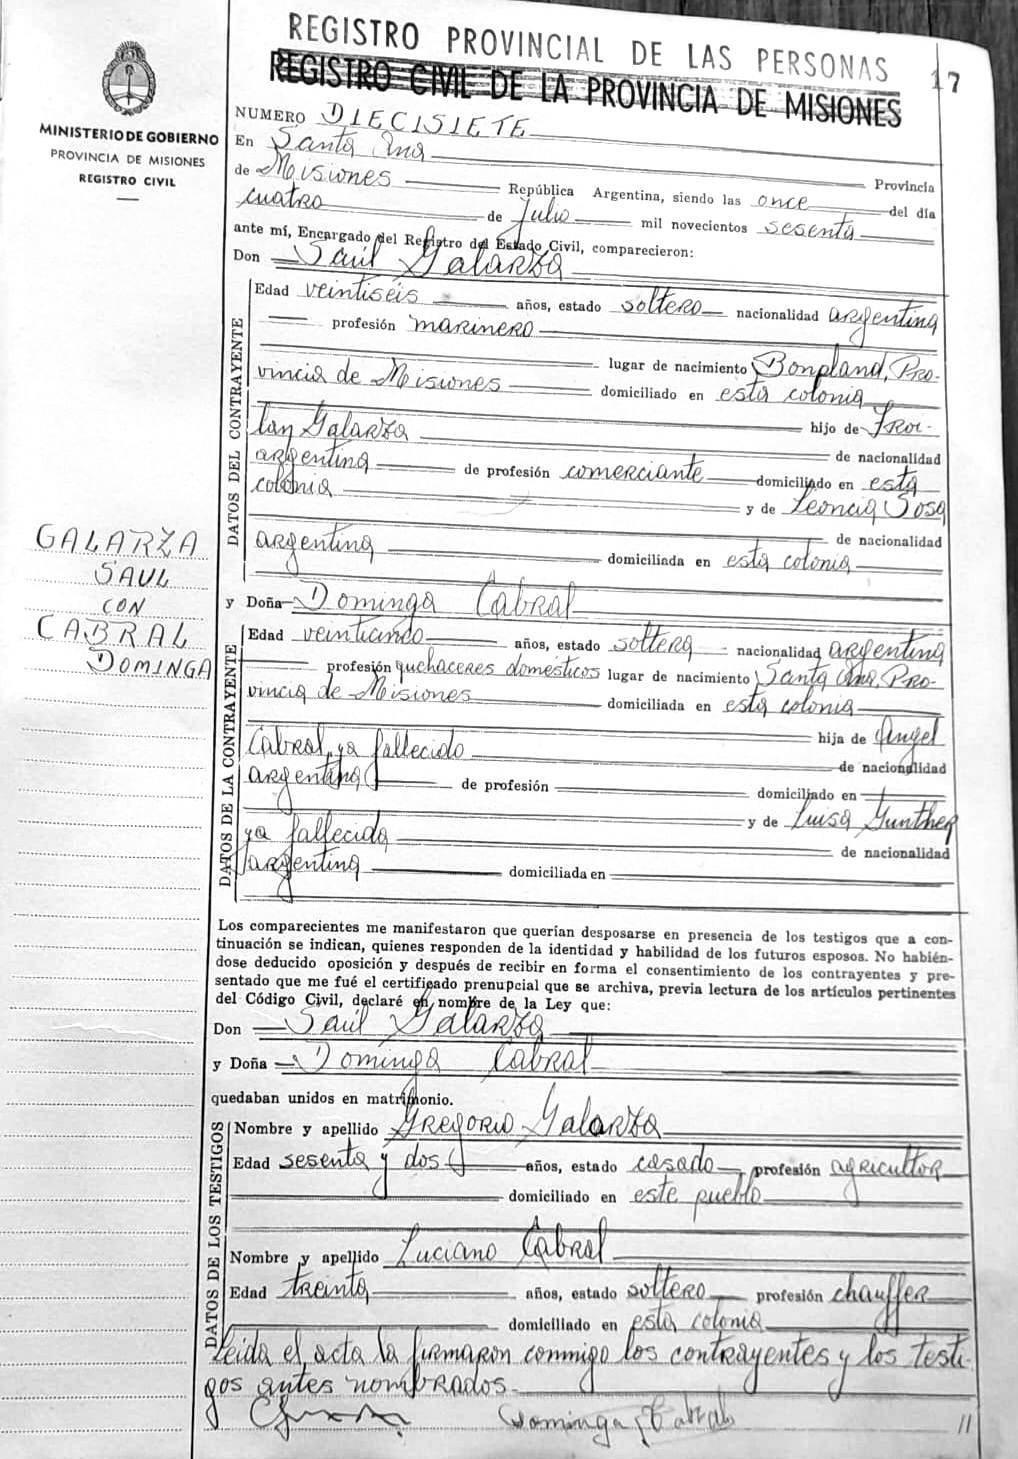 REGISTRO PROVINCIAL DE LAS PERSONAS
REGISTRO CIVIL DE LA PROVINCIA DE MISIONES
17
MINISTERIO DE GOBIERNO
PROVINCIA DE MISIONES
REGISTRO CIVIL
NUMERO DIECISIETE
En Santa Ana Provincia
de Misiones República Argentina, siendo las once del día
cuatro de Julio mil novecientos sesenta
ante mí, Encargado del Registro del Estado Civil, comparecieron:
Don Saúl Galarza
DATOS DEL CONTRAYENTE
Edad veintiséis años, estado soltero nacionalidad argentina
profesión marinero
lugar de nacimiento Bonpland, Pro-
vincia de Misiones domiciliado en esta colonia
hijo de Froi-
lan Galarza de nacionalidad
argentina de profesión comerciante domiciliado en esta
colonia y de Leoncia Sosa
de nacionalidad
argentina domiciliada en esta colonia
GALARZA
SAUL
CON
CABRAL
DOMINGA
y Doña Dominga Cabral
DATOS DE LA CONTRAYENTE
Edad veinticinco años, estado soltera nacionalidad argentina
profesión quehaceres domésticos lugar de nacimiento Santa Ana, Pro-
vincia de Misiones domiciliada en esta colonia
hija de Angel
Cabral, ya fallecido de nacionalidad
argentina de profesión domiciliado en
y de Luisa Gunther
ya fallecida de nacionalidad
argentina domiciliada en
Los comparecientes me manifestaron que querían desposarse en presencia de los testigos que a con-
tinuación se indican, quienes responden de la identidad y habilidad de los futuros esposos. No habién-
dose deducido oposición y después de recibir en forma el consentimiento de los contrayentes y pre-
sentado que me fué el certificado prenupcial que se archiva, previa lectura de los artículos pertinentes
del Código Civil, declaré en nombre de la Ley que:
Don Saúl Galarza
y Doña Dominga Cabral
quedaban unidos en matrimonio.
DATOS DE LOS TESTIGOS
Nombre y apellido Gregorio Galarza
Edad sesenta y dos años, estado casado profesión agricultor
domiciliado en este pueblo
Nombre y apellido Luciano Cabral
Edad treinta años, estado soltero profesión chauffer
domiciliado en esta colonia
Leida el acta la firmaron conmigo los contrayentes y los testi-
gos antes nombrados.
Dominga Cabral //